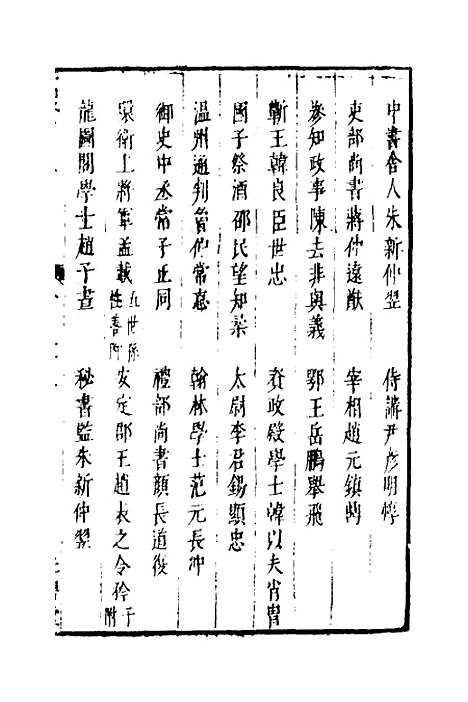 中書舍人朱新仲翌 侍講尹彥明惇
吏部尚書蔣仲遠猷 宰相趙元鎮
參知政事陳去非與義 鄂王岳鵬舉飛
蘄王韓良臣世忠 資政殿學士韓以夫肖冑
國子祭酒邵民望知柔 太尉李君錫顯忠
温州通判曾仲常悳 翰林學士范元長冲
御史中丞常子正同 禮部尚書顏長道復
環衛上將軍孟載 五世孫 性善附 安定郡王趙表之令矜 子 附
龍圖閣學士趙子晝 秘書監朱新仲翌